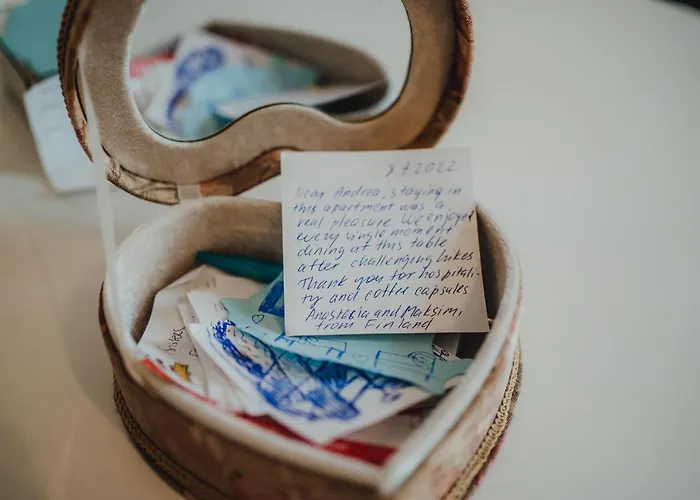 8 7 2022
Dear Andrea, staying in
this apartment was a
real pleasure. We enjoyed
every single moment
dining at this table
after challenging hikes
Thank you for hospitali-
ty and coffee capsules
Anastasia and Maksim,
from Finland